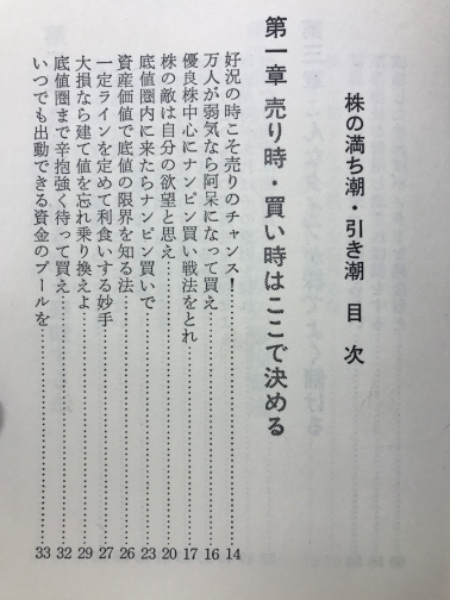 株の満ち潮・引き潮 目次
第一章 売り時・買い時はここで決める
好況の時こそ売りのチャンス!…………14
万人が弱気なら阿呆になって買え…………16
優良株中心にナンピン買い戦法をとれ…………17
株の敵は自分の欲望と思え…………20
底値圏内に来たらナンピン買いで…………23
資産価値で底値の限界を知る法…………26
一定ラインを定めて利食いする妙手…………27
大損なら建て値を忘れ乗り換えよ…………29
底値圏まで辛抱強く待って買え…………32
いつでも出動できる資金のプールを…………33